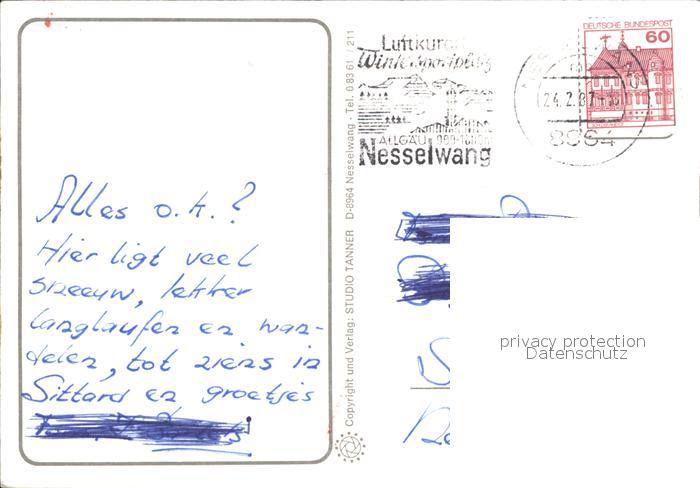 DEUTSCHE BUNDESPOST
60
Luftkurort
Wintersportplatz
24.2.87
8964
ALLGÄU 900-1600m
Nesselwang
Alles o.k.?
Hier ligt veel
sneeuw, lekker
langlaufen en wan-
delen, tot ziens in
Sittard en groetjes
Copyright und Verlag: STUDIO TANNER D-8964 Nesselwang - Tel. 0 83 61 / 211
privacy protection
Datenschutz